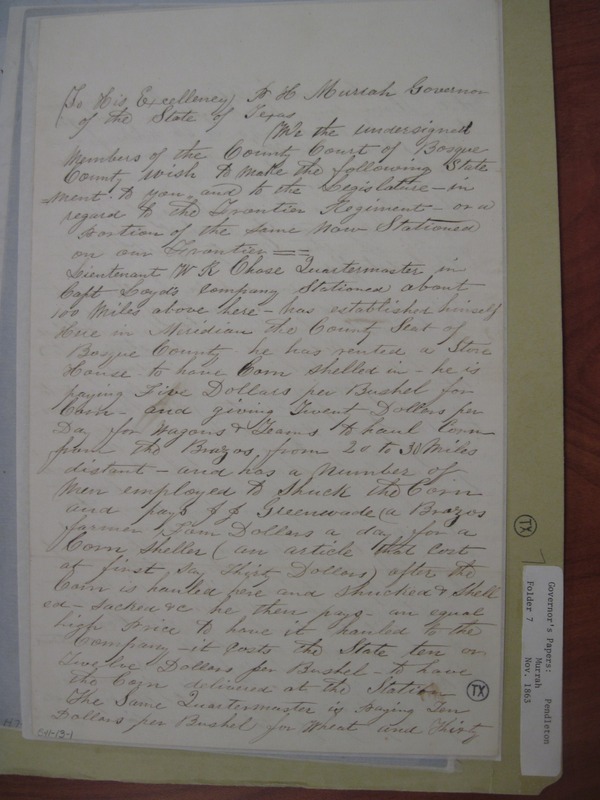 (To His Excellency) P H Murrah Governor
of the State of Texas
(We the undersigned
Members of the County Court of Bosque
County wish to make the following State
=ment to you, and to the Legislature - in
regard to the Frontier Regiment - or a
portion of the Same Now Stationed
on our Frontier ==
Lieutenant W R Chase Quartermaster in
Capt Loyds Company Stationed about
100 Miles above here - has established himself
Here in Meridian the County Seat of
Bosque County he has rented a Store
House to have Corn shelled in - he is
paying Five Dollars per Bushel for
Corn - and giving Twent Dollars per
Day for Wagons & Teams to haul Corn
from the Brazos from 20 to 30 Miles
distant - and has a number of
Men employed to Shuck the Corn
and pays J J Greenwade (a Brazos
farmer) Dollars a day for a
Corn Sheller (an article that Cost
at first, Say Thirty Dollars) after the
Corn is hauled here and Shucked & Shell
ed - Sacked &c he then pays - an equal
high Price to have it hauled to the
Company - it Costs the State ten or
twelve Dollars per Bushel - to have
the Corn delivered at the Station
The Same Quartermaster is paying Ten
Dollars per Bushel for Wheat and Thirty
TX
TX
Governor's Papers: Pendleton
Murrah
Folder 7 Nov. 1863